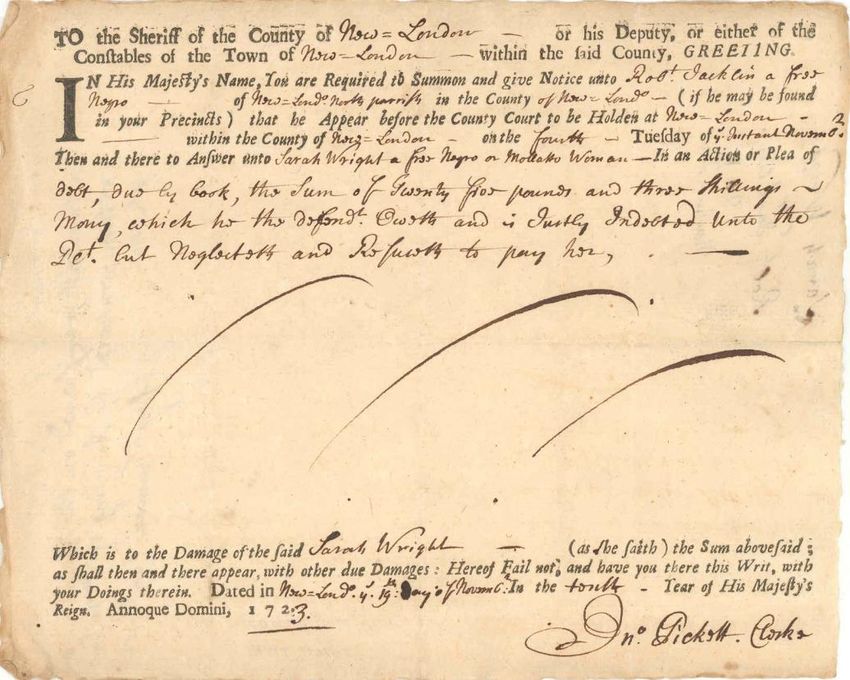 TO the Sheriff of the County of New=London — or his Deputy, or either of the
Constables of the Town of New=London — within the said County, GREETING.
IN His Majesty's Name, You are Required to Summon and give Notice unto Robt. Jacklin a free
Negro — of New=Lond. North parrish in the County of New=Lond. — ( if he may be found
in your Precincts ) that he Appear before the County Court to be Holden at New=London -
— within the County of New=London - on the fourth - Tuesday of y. Instant Novemb.
Then and there to Answer unto Sarah Wright a free Negro or Mollatto Woman — In an Action or Plea of
debt, due by book, the Sum of Twenty five pounds and three Shillings ~
Mony, which he the defendt. Oweth and is Justly Indebted Unto the
but Neglecteth and Refuseth to pay her, . —
Which is to the Damage of the said Sarah Wright — (as she saith ) the Sum abovesaid ;
as shall then and there appear, with other due Damages : Hereof Fail not, and have you there this Writ, with
your Doings therein. Dated in New=Lond. y. 19th. Day of Novemb. In the tenth - Year of His Majesty's
Reign. Annoque Domini, 1723.
Jno. Pickett. Clerke